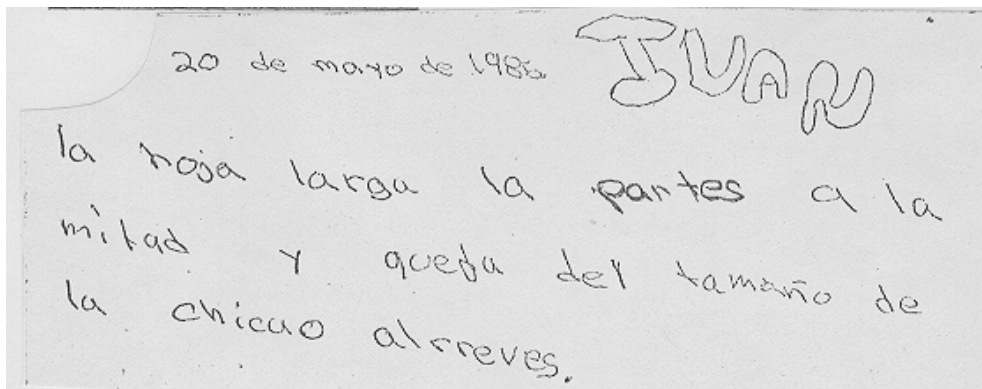 20 de mayo de 1986 JUAN
la roja larga la partes a la
mitad y queda del tamaño de
la chicao alrreves.